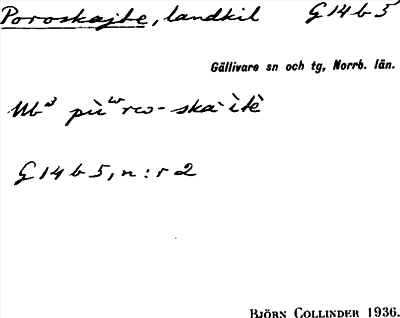 Poroskajte, landkil G 14 b 5
Gällivare sn och tg, Norrb. län.
G 14 b 5, n:r 2
BJÖRN COLLINDER 1936.